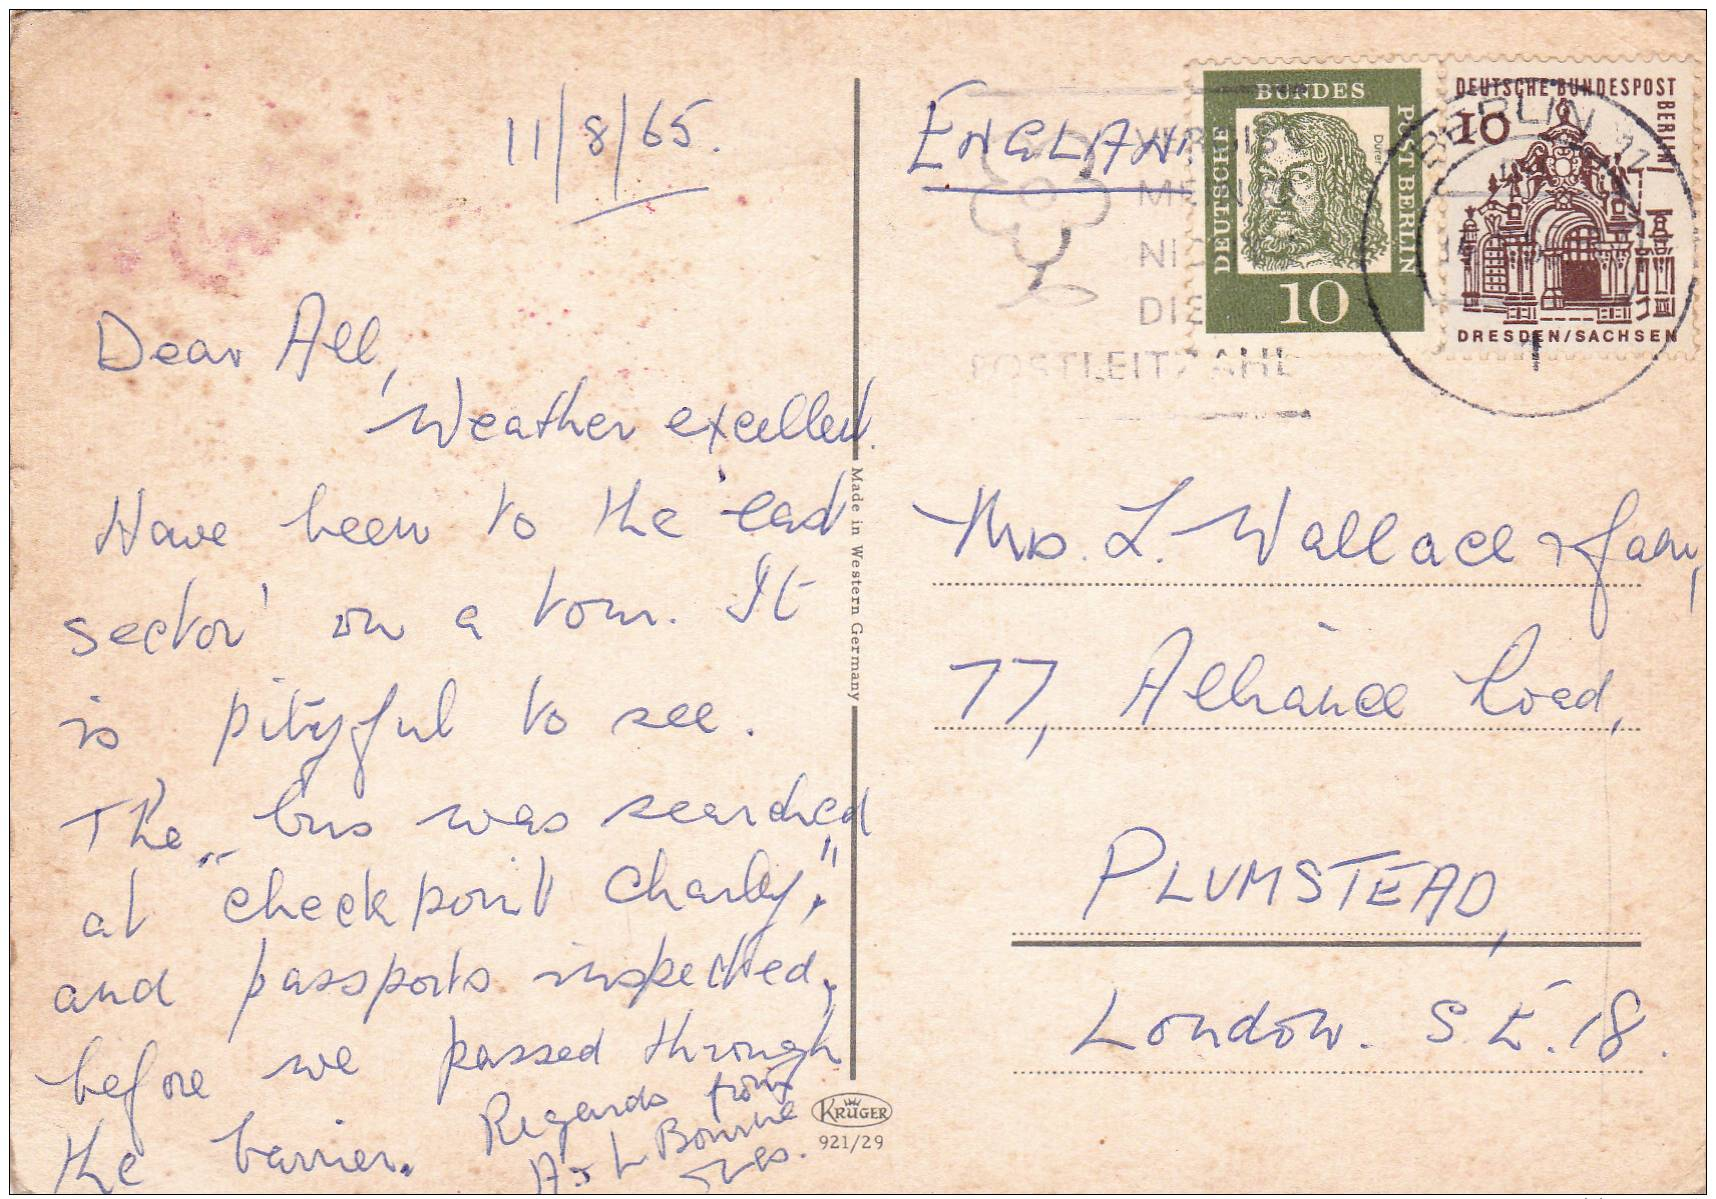 11/8/65.
Dear All,
Weather excellent.
Have been to the 'east
sector' on a tour. It
is pityful to see.
The bus was searched
at "checkpoint Charly",
and passports inspected,
before we passed through
the barrier.
Regards from
A & L Bourne
Made in Western Germany
KRÜGER
921/29
ENGLAND
DEUTSCHE BUNDES POST BERLIN
Dürer
10
DEUTSCHE BUNDESPOST BERLIN
10
DRESDEN/SACHSEN
BERLIN
1
DIE
POSTLEITZAHL
Mrs. L. Wallace & fam,
77, Alliance Road,
PLUMSTEAD,
London. S.E.18.